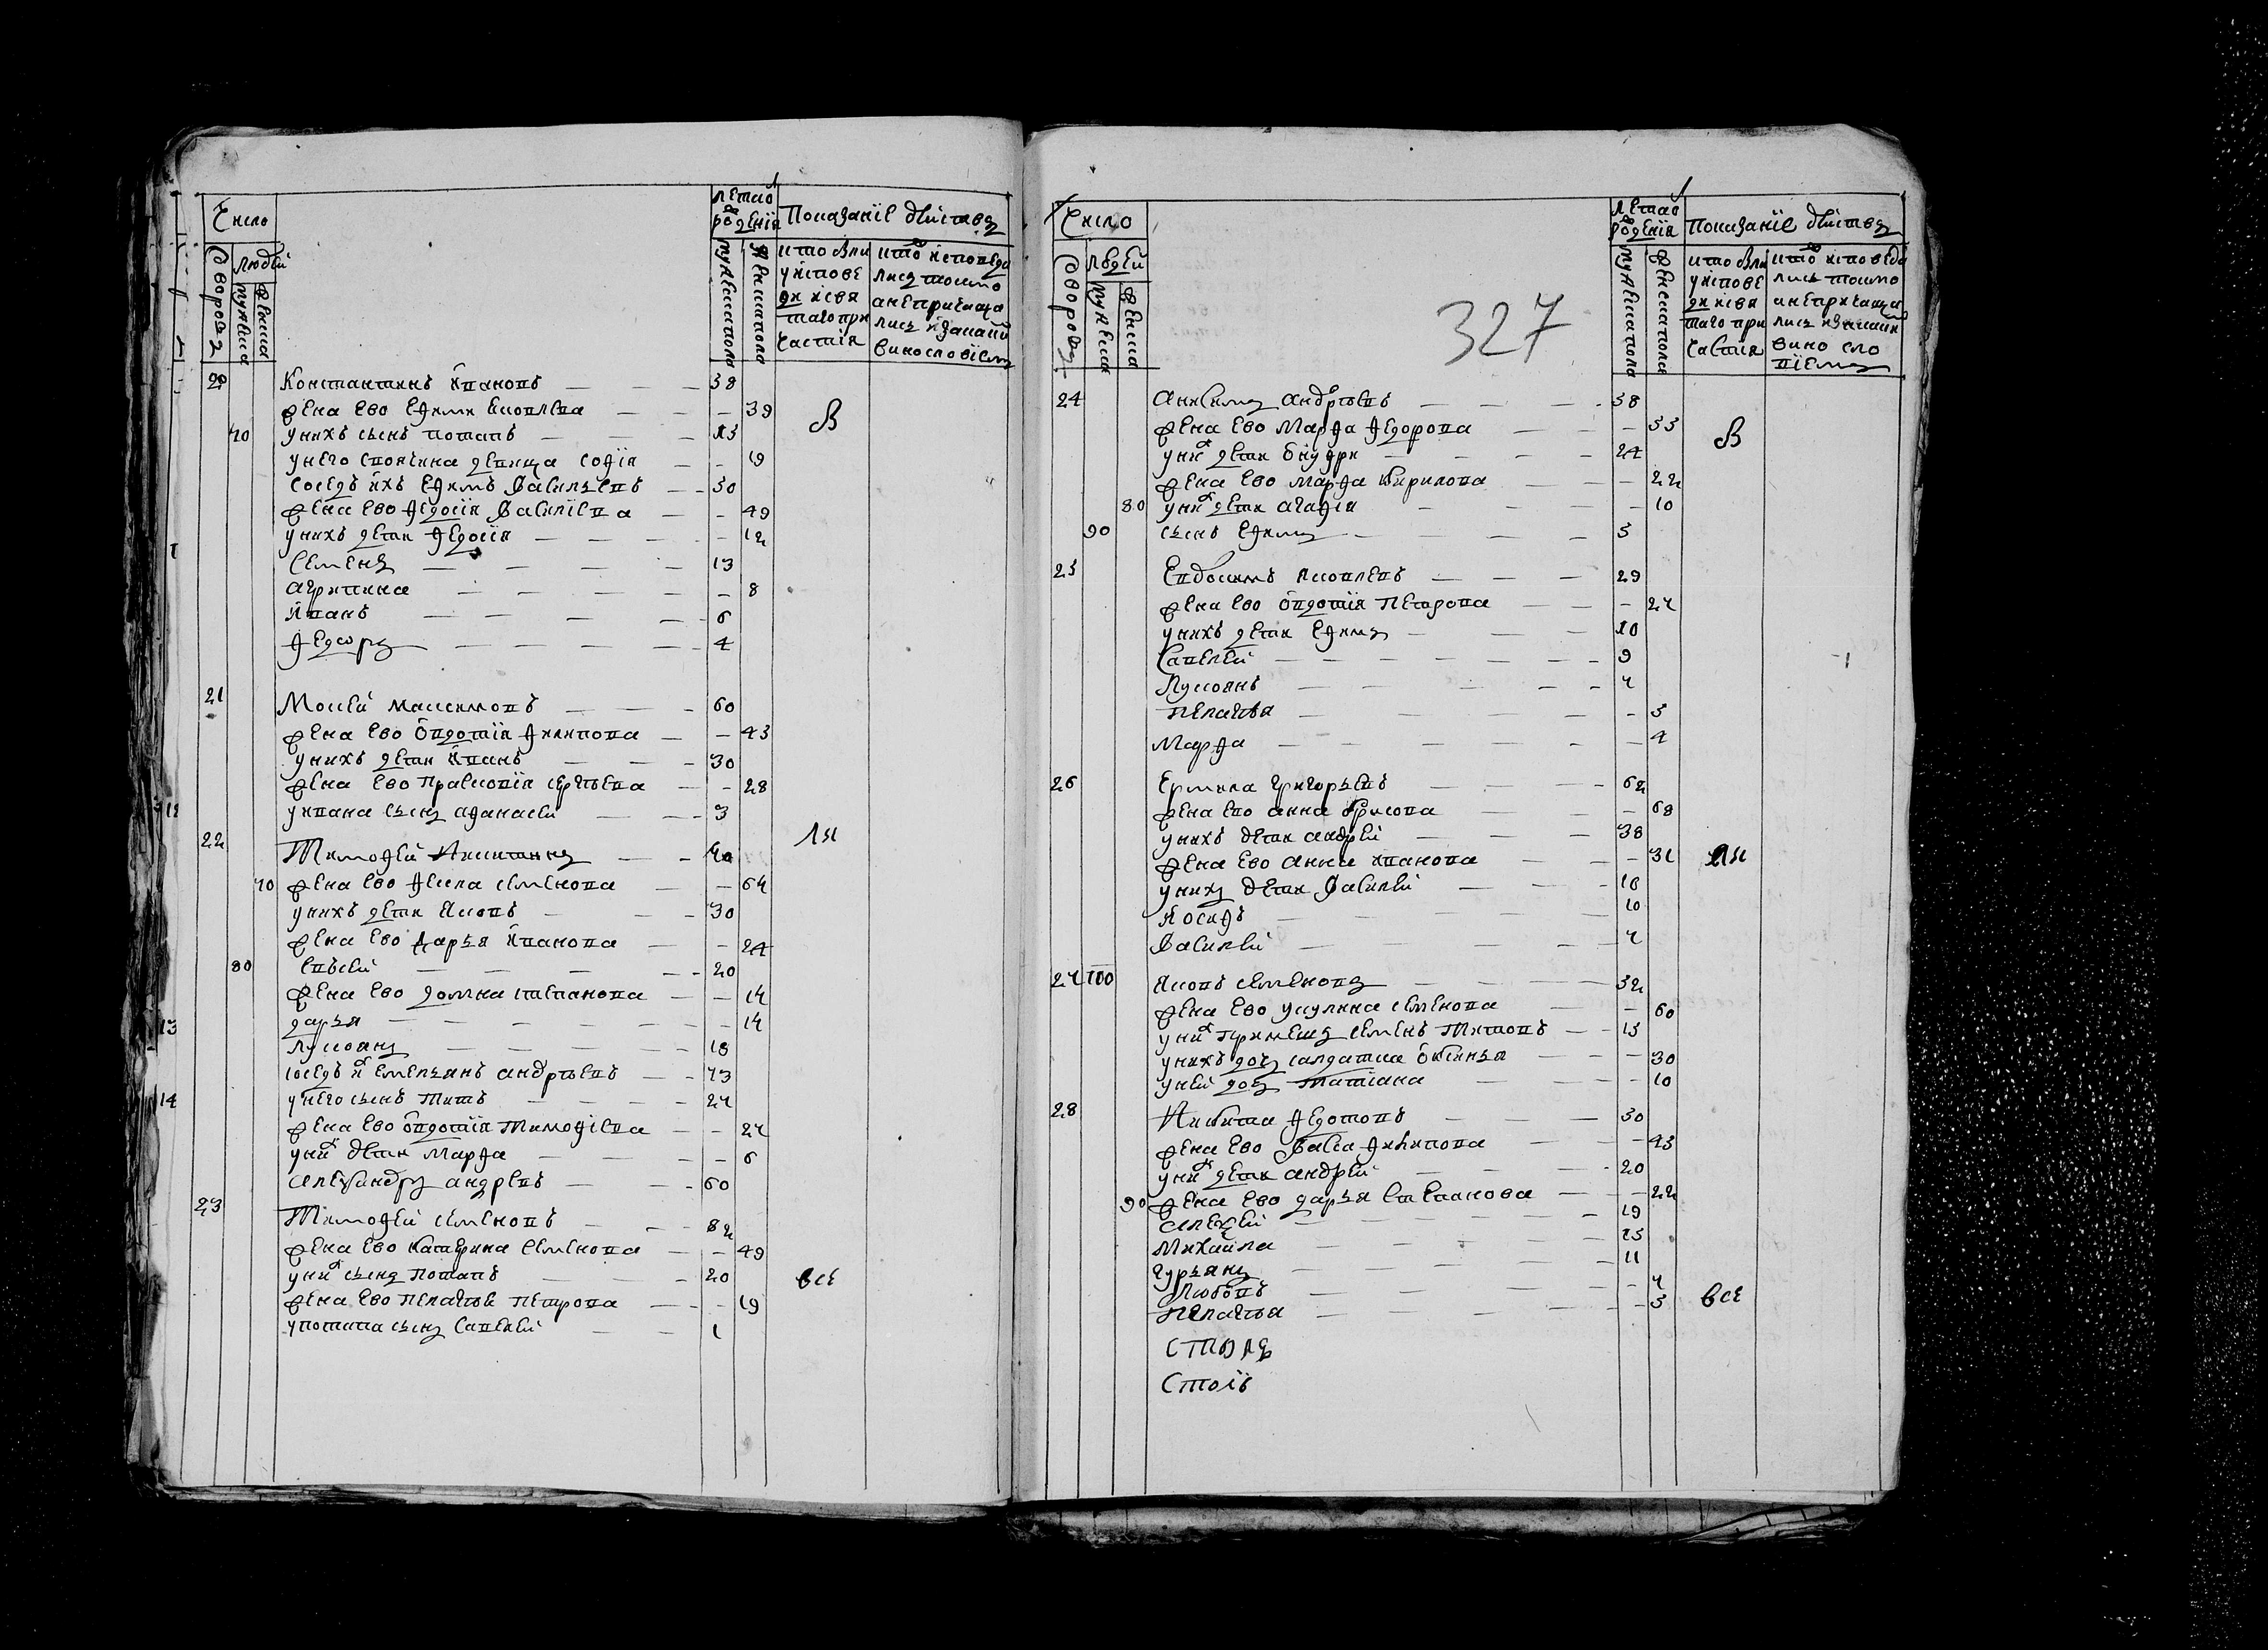 Число
Дворовъ
людей
мужеска
женска
лета о
рождения
мужеска пола
женска пола
Показание действъ
кто были
у испове
ди и свя
таго при
частия
кто исповеда
лись токмо
а не причаща
лись и за каким
винословиемъ
20 Константинъ Ивановъ — 38
жена ево Ефимия Яковлева — 39
70 у нихъ сынъ потапъ — 15
у него своячина девица София — 19
Соседъ ихъ Ефимъ Васильевъ — 50
жена ево Федосия Василиева — 49
у нихъ дети Федосия — 12
Семенъ — 13
агрипина — 8
Иванъ — 6
Федоръ — 4
21 Мосей максимовъ — 60
жена ево Овдотия Филипова — 43
у нихъ дети Иванъ — 30
жена ево Прасковия сергеева — 28
у ивана сынъ афанасей — 3
22 Тимофей Никитинъ — 70
70 жена ево Фекла семенова — 67
у нихъ дети Яковъ — 30
жена ево Дарья Иванова — 24
80 Евсей — 20
жена ево домна степанова — 17
дарья — 17
лукоянъ — 18
соседъ их емельянъ андреевъ — 73
у него сынъ Титъ — 27
жена ево Овдотия Тимофиева — 27
у них дети Марфа — 6
александръ андреевъ — 60
23 Тимофей семеновъ — 82
жена ево катерина Семенова — 49
у них сынъ Потапъ — 20
жена ево Пелагея Петрова — 19
у потапа сынъ Савелей — 1
В
ли
все
327
Число
Дворовъ
людей
мужеска
женска
лета о
рождения
мужеска пола
женска пола
Показание действъ
кто были
у испове
ди и свя
таго при
частия
кто исповеда
лись токмо
а не причаща
лись и за каким
вино сло
виемъ
24 андреевъ — 58
жена ево Марфа Федорова — 55
у них дети — 24
жена ево Марфа Кирилова — 22
80 у них дети агафия — 10
90 сынъ Ефимъ — 5
25 Евдокимъ Яковлевъ — 29
жена ево Овдотия Петрова — 27
у нихъ дети Ефимъ — 10
Савелей — 9
Лукоянъ — 7
Пелагея — 5
Марфа — 4
26 Ермила Григорьевъ — 62
жена ево анна — 68
у нихъ дети андрей — 38
жена ево анна иванова — 31
у нихъ дети Василей — 18
Иосифъ — 10
Василей — 7
27 100 Яковъ семеновъ — 52
жена ево улияна семенова — 60
у них приимешъ семенъ Титовъ — 15
у нихъ дочь салдатка — 30
у ней дочь Татиана — 10
28 Никита Федотовъ — 50
жена ево Васса Филипова — 43
у них дети андрей — 20
90 жена ево дарья Степанова — 22
алексей — 19
Михаила — 15
гурьянъ — 11
Любовь — 7
Пелагея — 5
В
ли
все